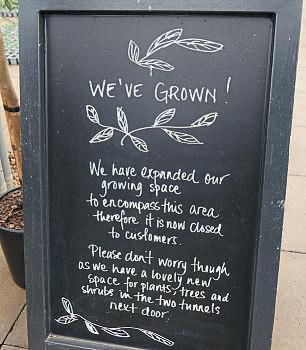 WE'VE GROWN!
We have expanded our
growing space
to encompass this area
therefore it is now closed
to customers.
Please don't worry though
as we have a lovely new
space for plants, trees and
shrubs in the two tunnels
next door.